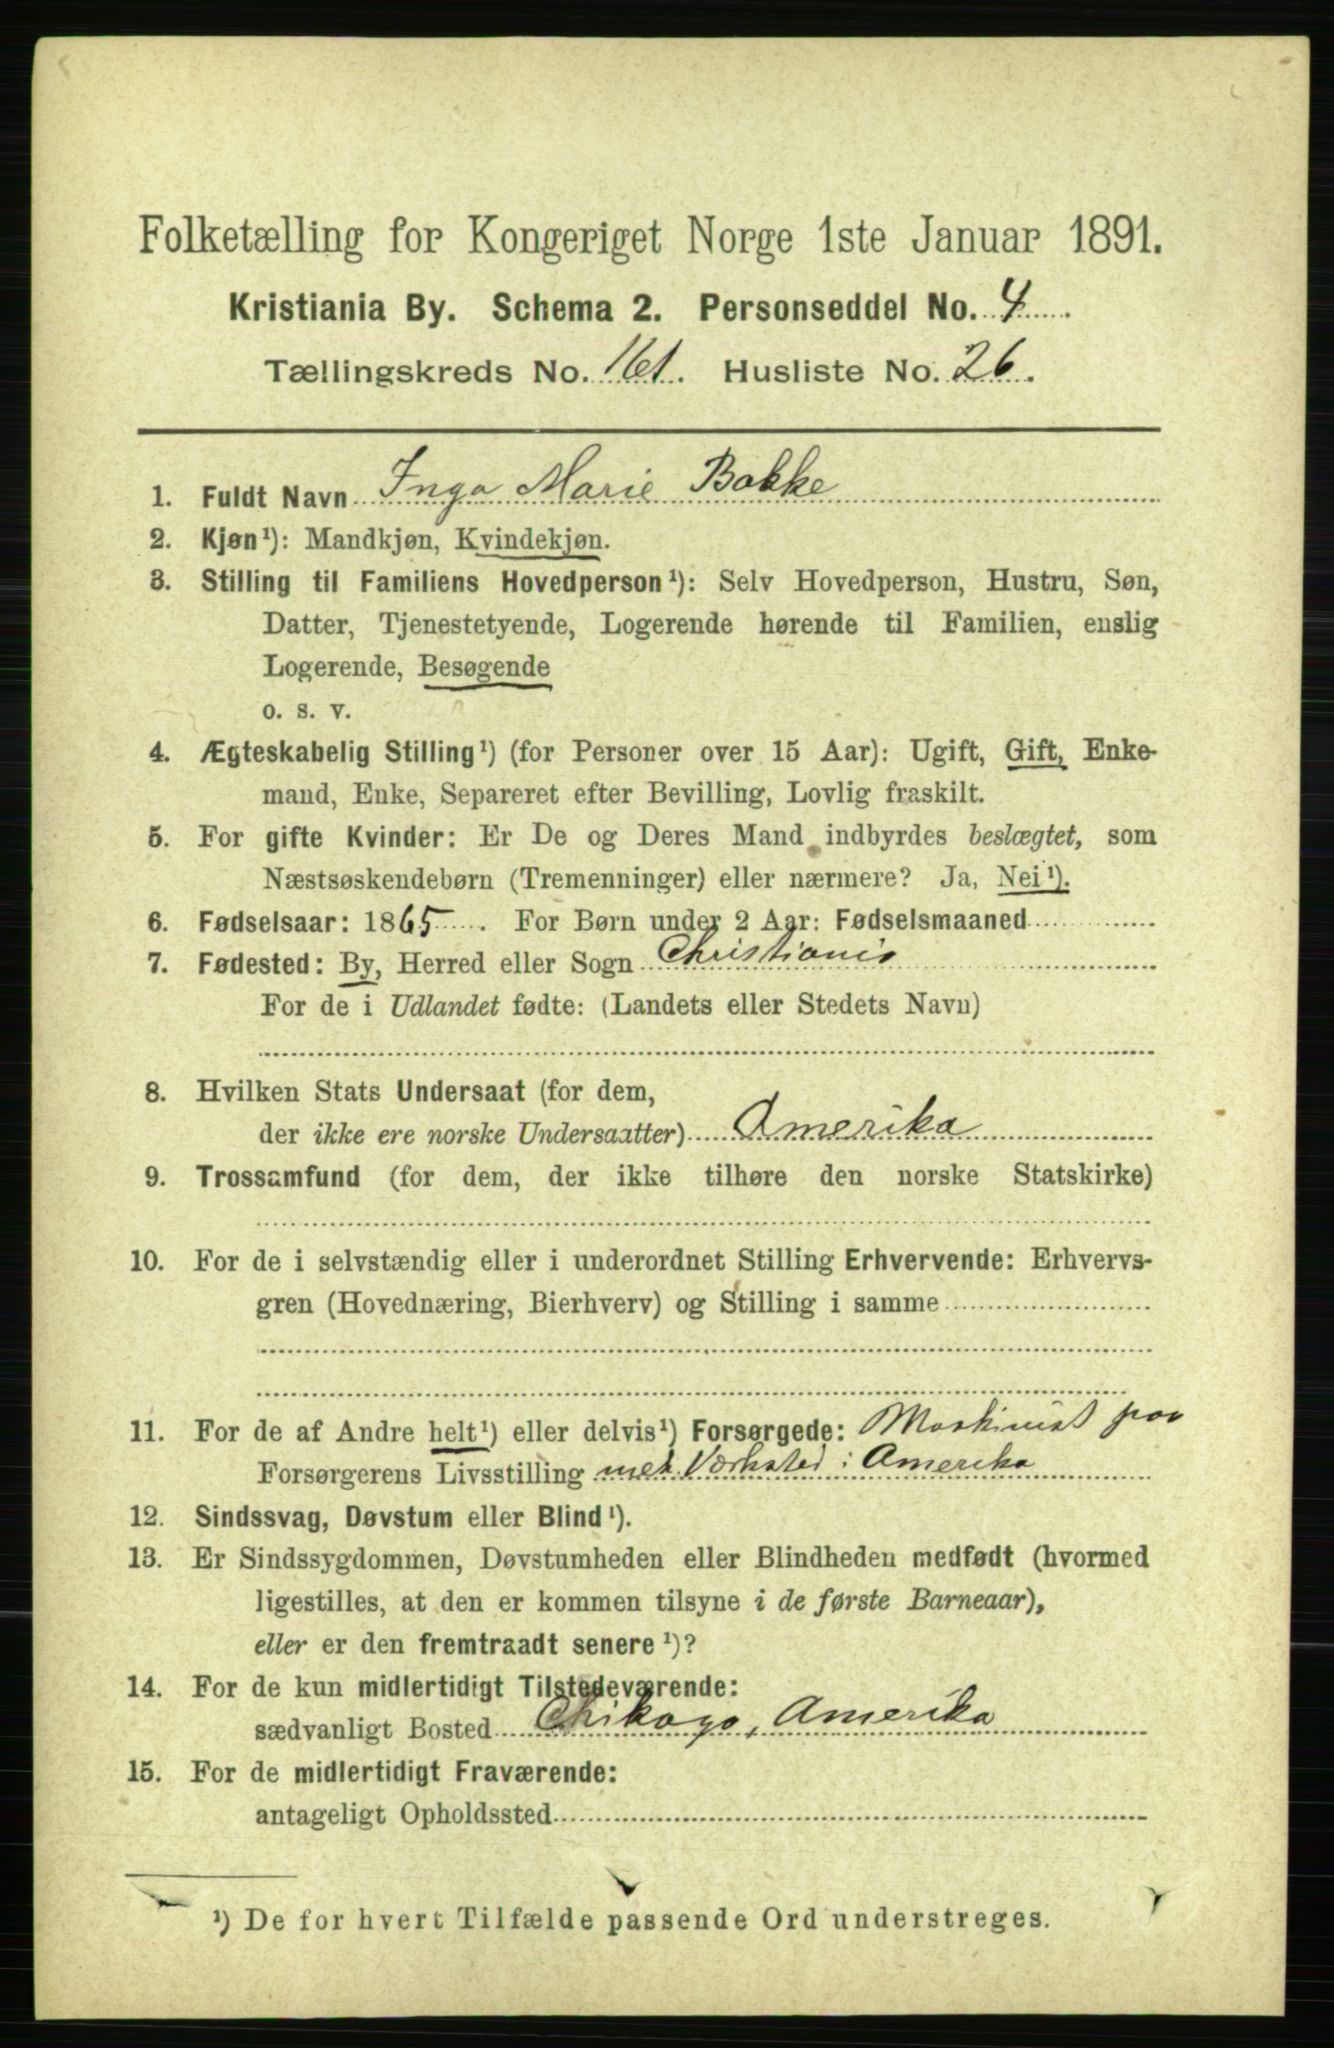 Folketælling for Kongeriget Norge 1ste Januar 1891.
Kristiania By. Schema 2. Personseddel No. 4.
Tællingskreds No. 161. Husliste No. 26.
1. Fuldt Navn Inga Marie Bakke
2. Kjøn¹): Mandkjøn, Kvindekjøn.
3. Stilling til Familiens Hovedperson¹): Selv Hovedperson, Hustru, Søn,
Datter, Tjenestetyende, Logerende hørende til Familien, enslig
Logerende, Besøgende
o. s. v.
4. Ægteskabelig Stilling¹) (for Personer over 15 Aar): Ugift, Gift, Enke-
mand, Enke, Separeret efter Bevilling, Lovlig fraskilt.
5. For gifte Kvinder: Er De og Deres Mand indbyrdes beslægtet, som
Næstsøskendebørn (Tremenninger) eller nærmere? Ja, Nei¹).
6. Fødselsaar: 1865. For Børn under 2 Aar: Fødselsmaaned
7. Fødested: By, Herred eller Sogn Christiania
For de i Udlandet fødte: (Landets eller Stedets Navn)
8. Hvilken Stats Undersaat (for dem,
der ikke ere norske Undersaatter) Amerika
9. Trossamfund (for dem, der ikke tilhøre den norske Statskirke)
10. For de i selvstændig eller i underordnet Stilling Erhvervende: Erhvervs-
gren (Hovednæring, Bierhverv) og Stilling i samme
11. For de af Andre helt¹) eller delvis¹) Forsørgede: Maskinist paa
Forsørgerens Livsstilling mek. Værksted i Amerika
12. Sindssvag, Døvstum eller Blind¹).
13. Er Sindssygdommen, Døvstumheden eller Blindheden medfødt (hvormed
ligestilles, at den er kommen tilsyne i de første Barneaar),
eller er den fremtraadt senere¹)?
14. For de kun midlertidigt Tilstedeværende:
sædvanligt Bosted Chikago, Amerika
15. For de midlertidigt Fraværende:
antageligt Opholdssted
¹) De for hvert Tilfælde passende Ord understreges.